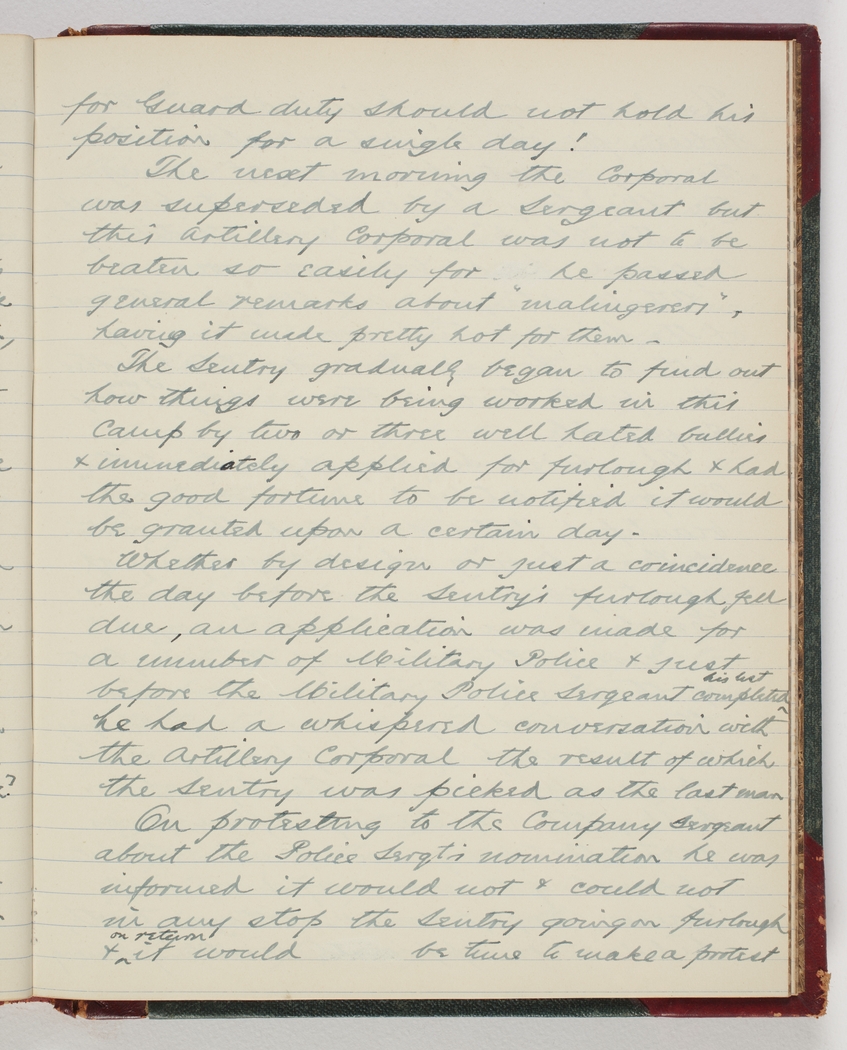 for Guard duty should not hold his
position for a single day!
The next morning the Corporal
was superseded by a Sergeant but
this Artillery Corporal was not to be
beaten so easily for he passed
general remarks about "malingerers",
having it made pretty hot for them -
The Sentry gradually began to find out
how things were being worked in this
Camp by two or three well hated bullies
& immediately applied for furlough & had
the good fortune to be notified it would
be granted upon a certain day -
Whether by design or just a coincidence
the day before the Sentry's furlough fell
due, an application was made for
a number of Military Police & just
his list
before the Military Police Sergeant completed
he had a whispered conversation with
the Artillery Corporal the result of which
the Sentry was picked as the last man
On protesting to the Company Sergeant
about the Police Sergt's nomination he was
informed it would not & could not
in any stop the Sentry going on furlough
on return
& it would be time to make a protest